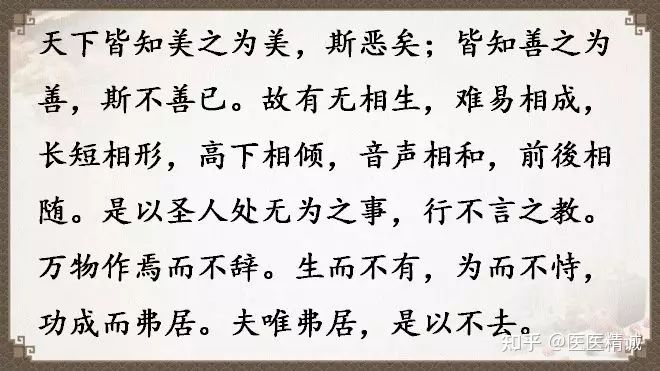 天下皆知美之为美，斯恶矣；皆知善之为
善，斯不善已。故有无相生，难易相成，
长短相形，高下相倾，音声相和，前後相
随。是以圣人处无为之事，行不言之教。
万物作焉而不辞。生而不有，为而不恃，
功成而弗居。夫唯弗居，是以不去。
知乎 @医医精诚